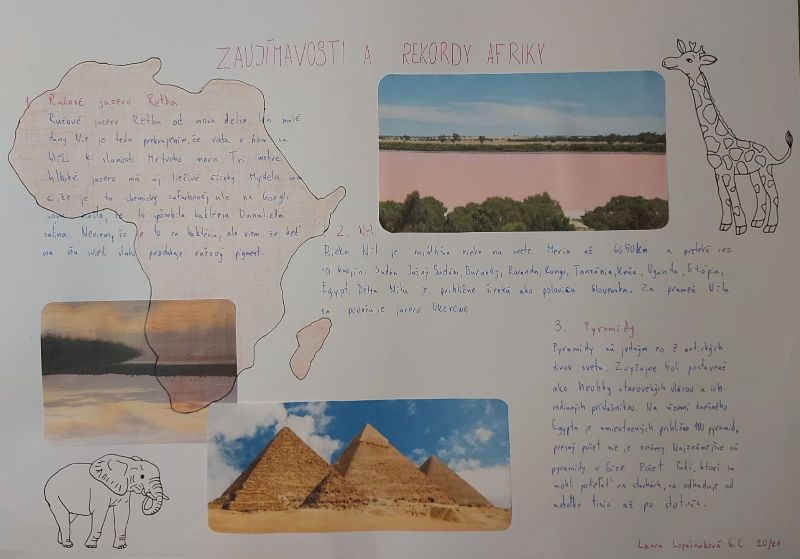 ZAUJÍMAVOSTI A REKORDY AFRIKY
1. Ružové jazero Retba
Ružové jazero Retba od mora delia len malé
duny. Nie je teda prekvapením, že voda v ňom sa
blíži k slanosti Mŕtveho mora. Tri metre
hlboké jazero má aj liečivé účinky. Myslela som
si, že je to chemicky zafarbené, ale na Googli
som našla, že to spôsobila baktéria Dunaliela
salina. Neviem, čo je to za baktériu, ale viem, že keď
na ňu svieti slnko produkuje ružový pigment.
2. Níl
Rieka Níl je najdlhšia rieka na svete. Meria až 6650 km a preteká cez
10 krajín: Sudán, Južný Sudán, Burundy, Rwanda, Kongo, Tanzánia, Keňa, Uganda, Etiópia,
Egypt. Delta Nílu je približne široká ako polovica Slovenska. Za prameň Níla
sa považuje jazero Ukerewe.
3. Pyramídy
Pyramídy sú jedným zo 7 antických
divov sveta. Zvyčajne boli postavené
ako hrobky starovekých vládcov a ich
rodinných príslušníkov. Na území dnešného
Egypta je umiestnených približne 100 pyramíd,
presný počet nie je známy. Najznámejšie sú
pyramídy v Gíze. Počet ľudí, ktorí sa
mohli podieľať na stavbách, sa odhaduje od
niekoľko tisíc až po stotisíc.
Laura 6.C 20/21